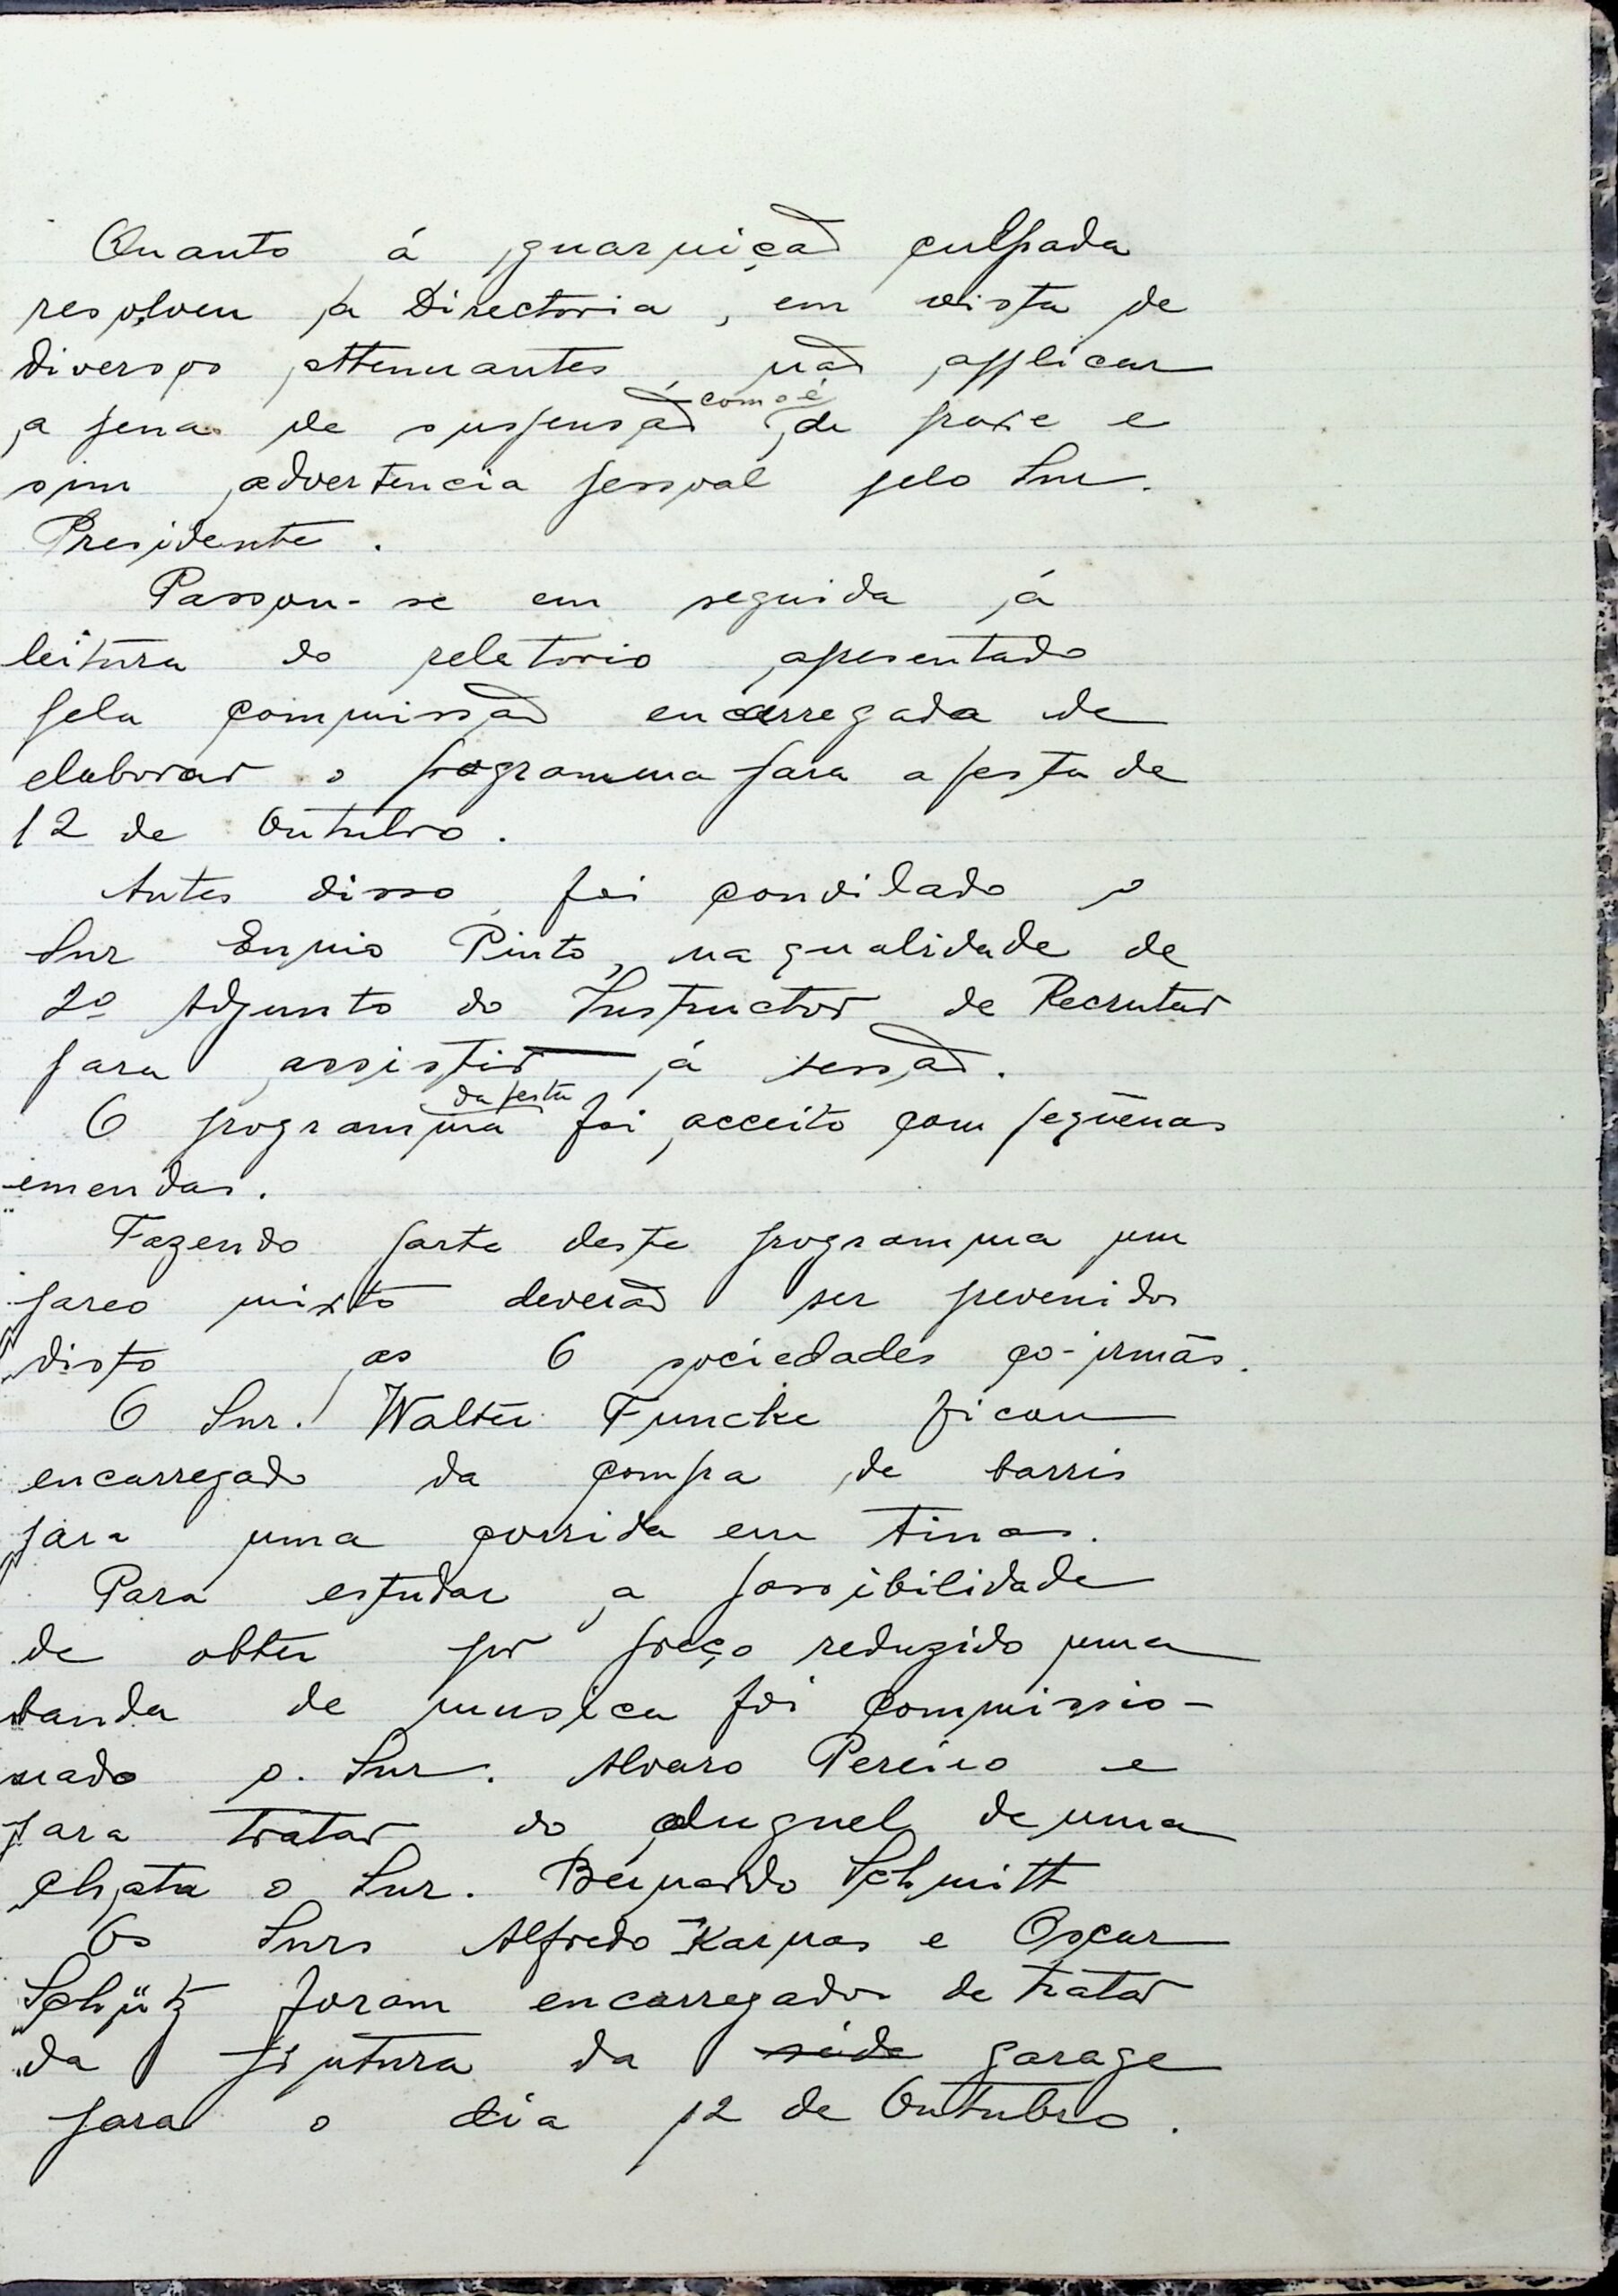 Quanto á guarnição culpada
resolveu a Directoria, em vista de
diversos attenuantes, não applicar
a pena de suspensão como é de praxe e
sim advertencia pessoal pelo Snr.
Presidente.
Passou-se em seguida á
leitura do relatorio apresentado
pela commissão encarregada de
elaborar o programma para a festa de
12 de Outubro.
Antes disso, foi convidado o
Snr Ennio Pinto, na qualidade de
2º Adjunto do Instructor de Recrutas
para assistir á sessão.
O programma da festa foi acceito com peqüenas
emendas.
Fazendo parte deste programma um
pareo mixto deverão ser prevenidos
disto as 6 sociedades co-irmãs.
O Snr. Walter Funcke ficou
encarregado da compra de barris
para uma corrida em tinas.
Para estudar a possibilidade
de obter por preço reduzido uma
banda de musica foi commissio-
nado o Snr. Alvaro Pereira e
para tratar do aluguel de uma
chata o Snr. Bernardo Schmitt
Os Snrs Alfredo Karnas e Oscar
Schütz foram encarregados de tratar
da pintura da séde garage
para o dia 12 de Outubro.